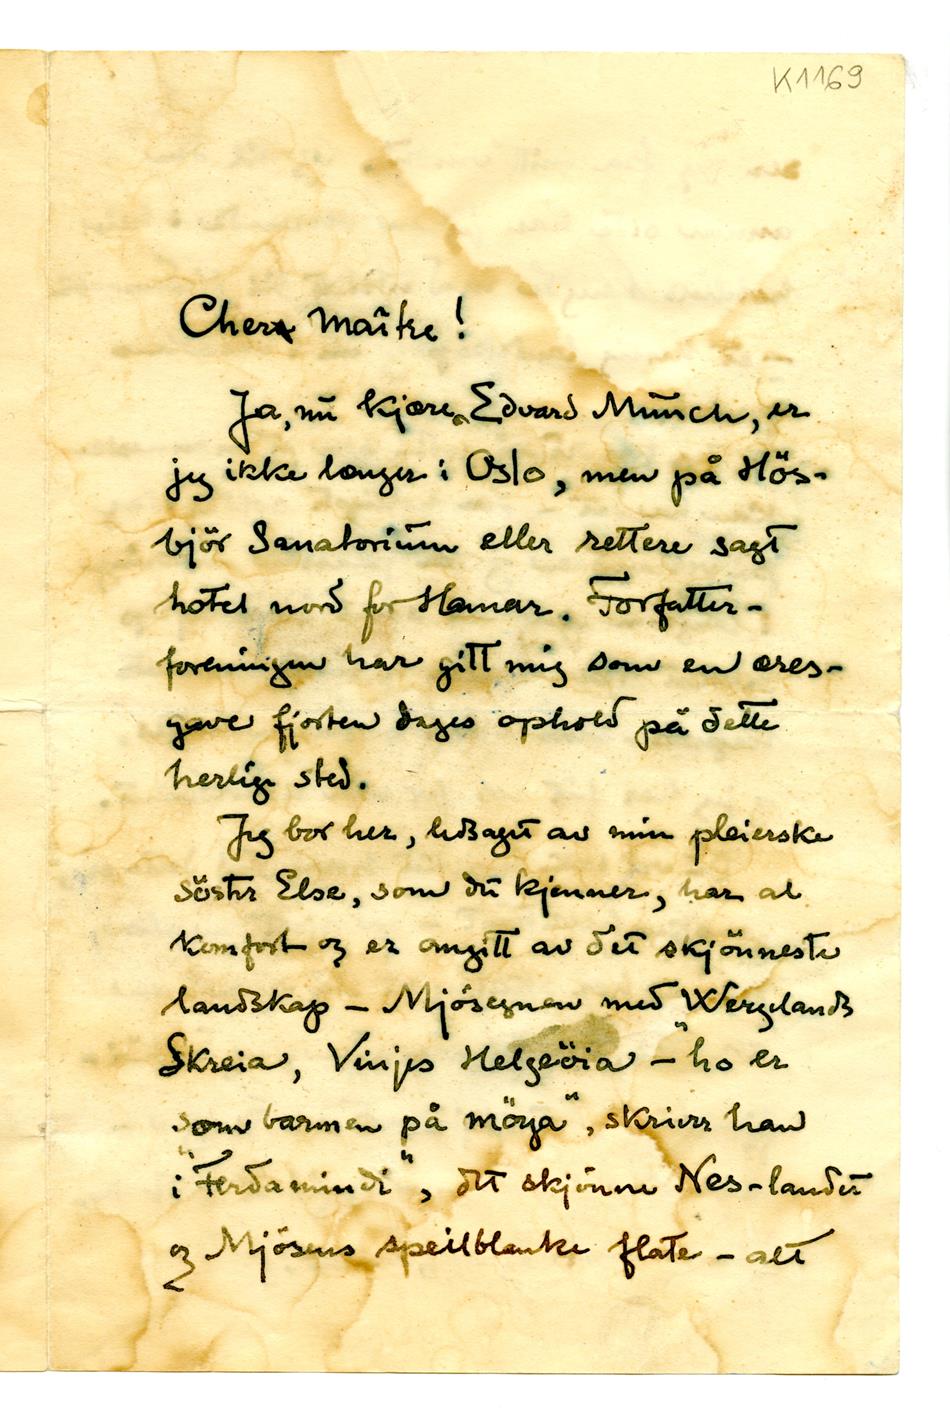 K1169
Cher Maître!
Ja, nu kjære Edvard Munch, er
jeg ikke længer i Oslo, men på Hös-
björ Sanatorium eller rettere sagt
hotel nord for Hamar. Forfatter-
foreningen har gitt mig som en æres-
gave fjorten dages ophold på dette
herlige sted.
Jeg bor her, ledsaget av min pleierske
söster Else, som du kjenner, har al
komfort og er omgitt av det skjönneste
landskap – Mjösegnen med Wergelands
Skreia, Vinjes Helgeöia – "ho er
som barmen på möya", skriver han
i "Ferdaminni", det skjönne Nes-landet
og Mjösens speilblanke flate – alt